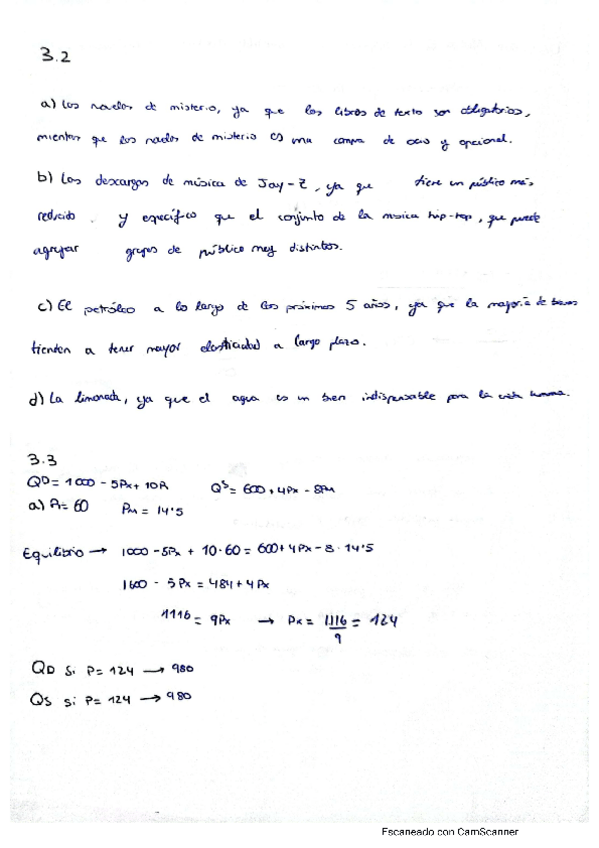 3.2
a) Las novelas de misterio, ya que los libros de texto son obligatorios,
mientras que las novelas de misterio es una compra de ocio y opcional.
b) Las descargas de música de Jay-Z, ya que tiene un público más
reducido y específico que el conjunto de la música hip-hop, que puede
agregar grupos de público muy distintos.
c) El petróleo a lo largo de los próximos 5 años, ya que la mayoría de bienes
tienden a tener mayor elasticidad a largo plazo.
d) La limonada, ya que el agua es un bien indispensable para la vida humana.
3.3
QD = 1000 - 5Px + 10R QS = 600 + 4Px - 8PM
a) R = 60 PM = 14'5
Equilibrio → 1000 - 5Px + 10·60 = 600 + 4Px - 8·14'5
1600 - 5Px = 484 + 4Px
1116 = 9Px → Px = 1116/9 = 124
QD si P = 124 → 980
QS si P = 124 → 980
Escaneado con CamScanner